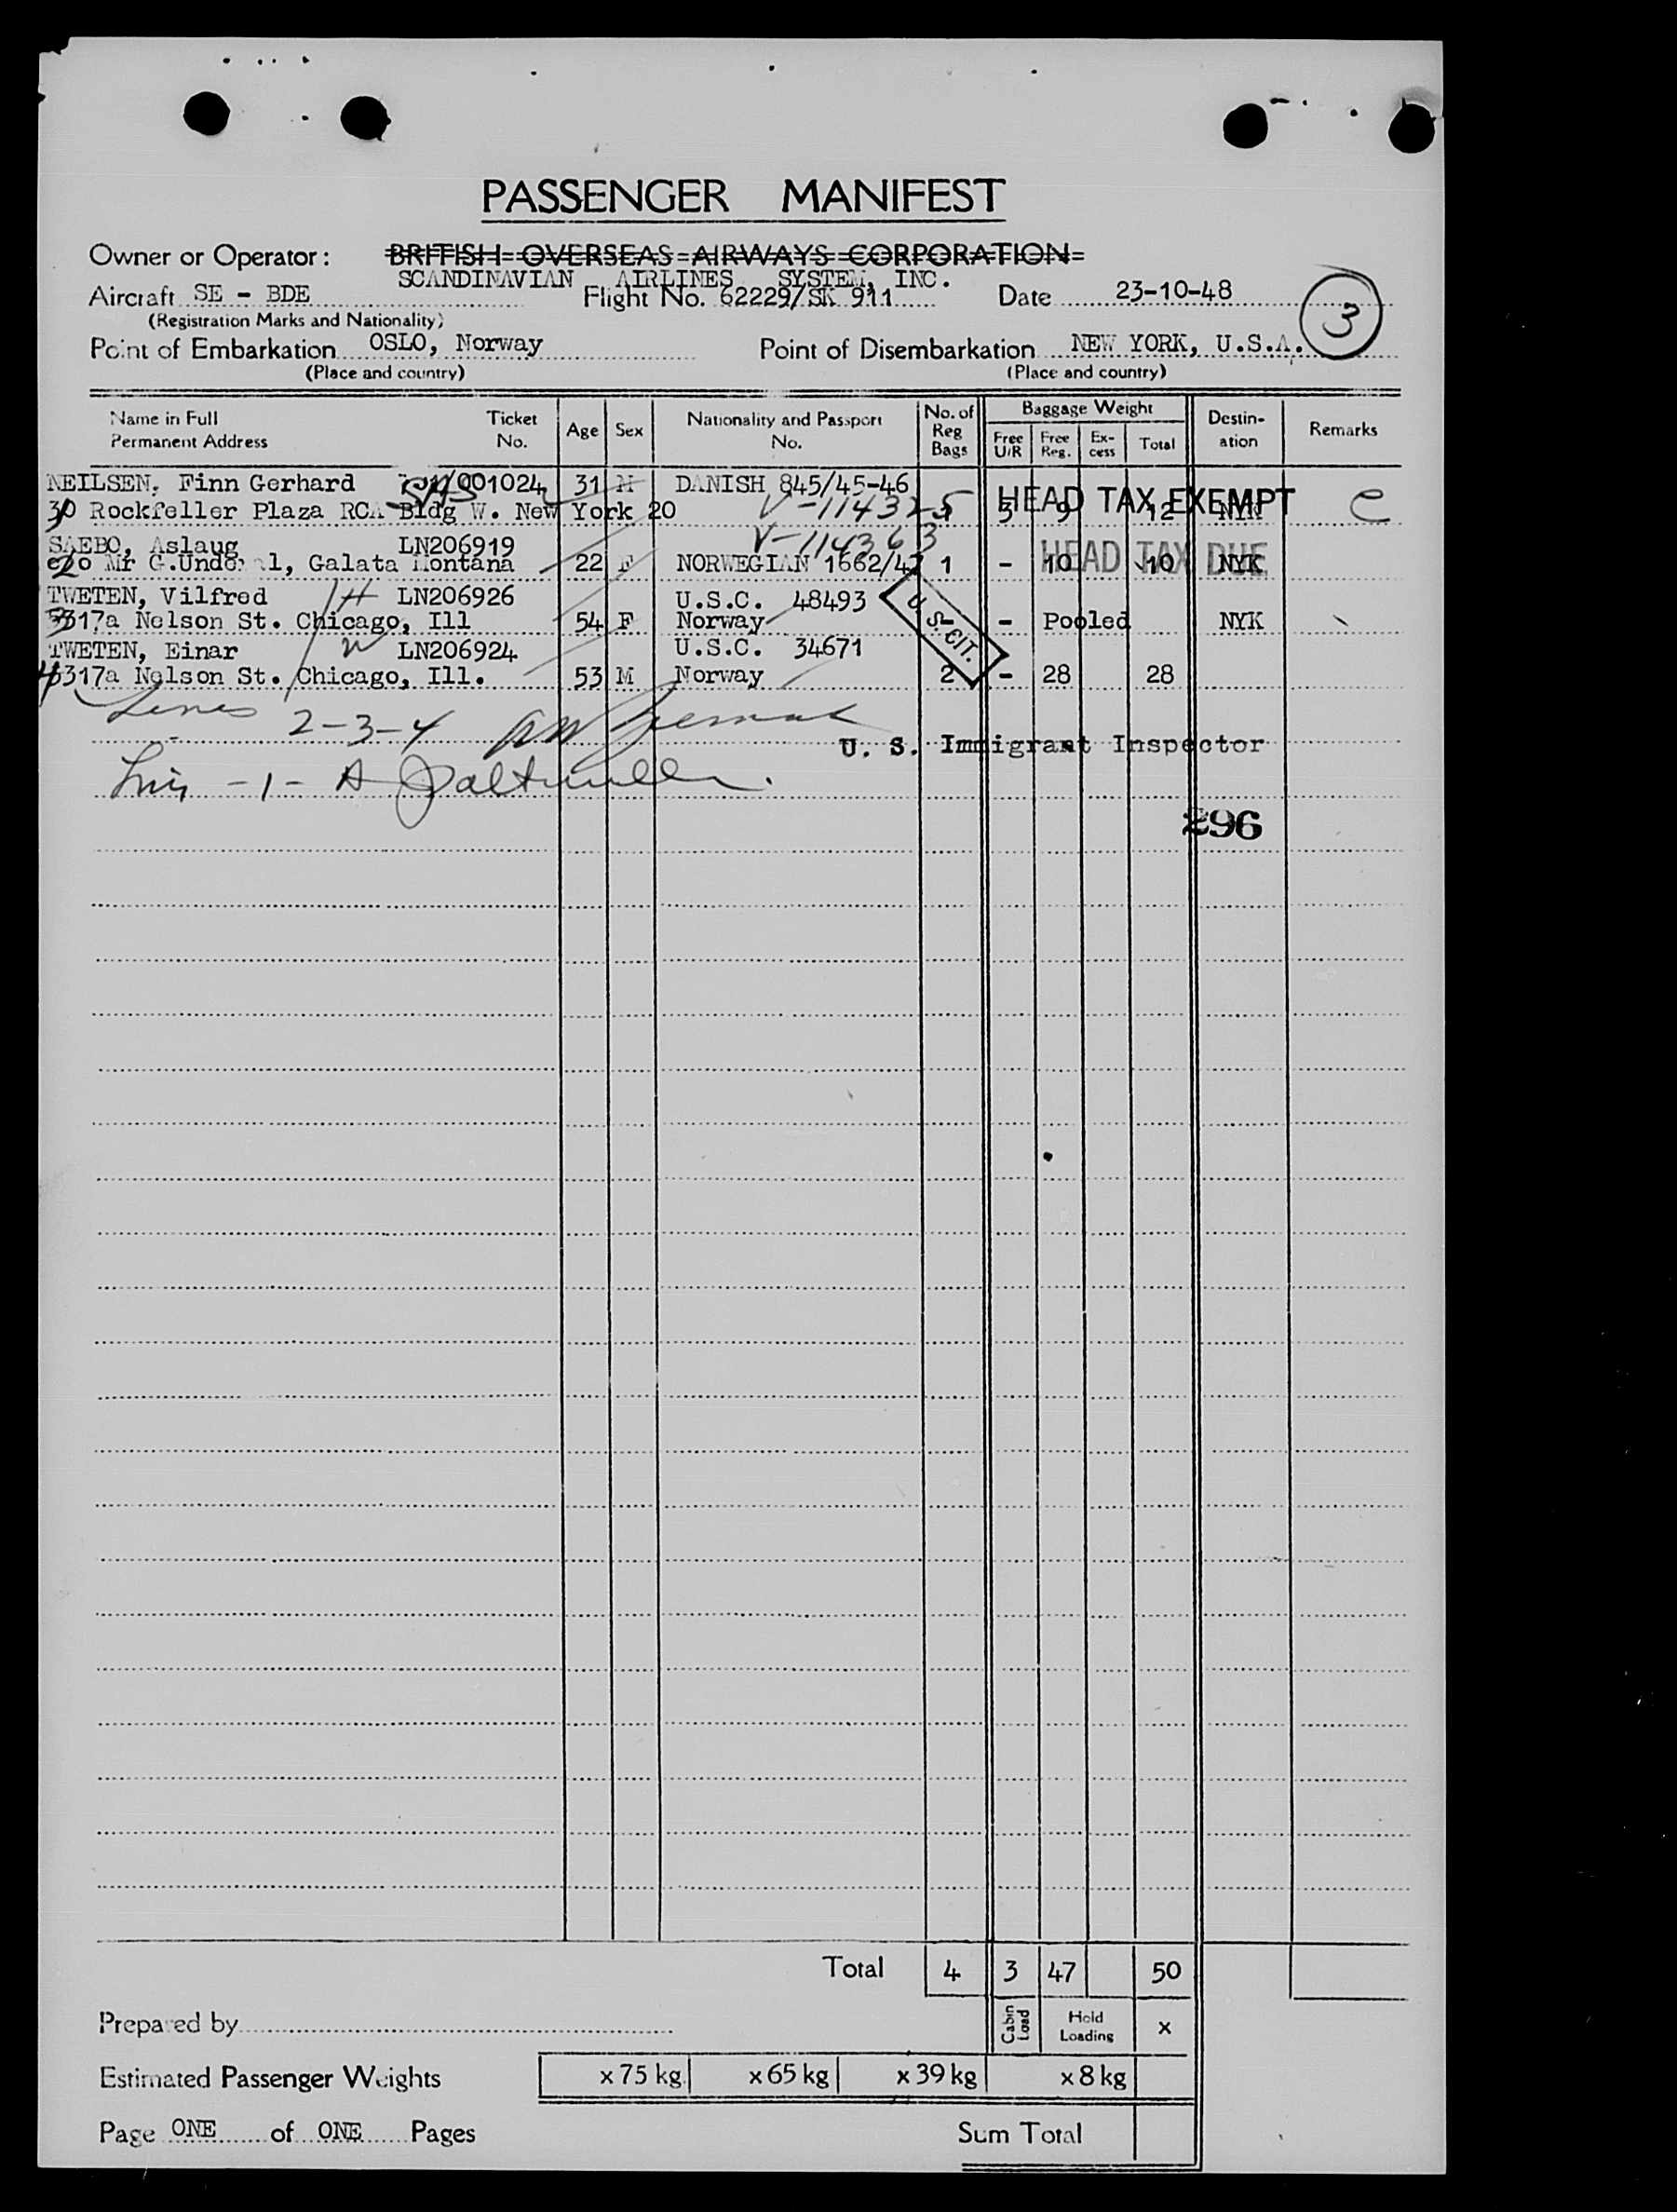 PASSENGER MANIFEST
Owner or Operator: BRITISH OVERSEAS AIRWAYS CORPORATION
SCANDINAVIAN AIRLINES SYSTEM, INC.
Aircraft SE - BDE Flight No. 62229/SK 911 Date 23-10-48
3
(Registration Marks and Nationality)
Point of Embarkation OSLO, Norway Point of Disembarkation NEW YORK, U.S.A.
(Place and country) (Place and country)
Name in Full Permanent Address Ticket No. Age Sex Nationality and Passport No. No. of Reg Bags Baggage Weight Free U/R Free Reg. Excess Total Destination Remarks
NEILSEN, Finn Gerhard SAS 001024 31 M DANISH 845/45-46
V-114325 HEAD TAX EXEMPT e
30 Rockfeller Plaza RCA Bldg W. New York 20 3 9 12 NYK
V-114363
SAEBO, Aslaug LN206919
HEAD TAX DUE
c/o Mr G. Galata Montana 22 F NORWEGIAN 1662/47 1 - 10 10 NYK
TWETEN, Vilfred H LN206926 U.S.C. 48493
U.S. CIT.
5317a Nelson St. Chicago, Ill 54 F Norway - - Pooled NYK
TWETEN, Einar W LN206924 U.S.C. 34671
5317a Nelson St. Chicago, Ill. 53 M Norway 2 - 28 28
Lines 2-3-4
U. S. Immigrant Inspector
-1- A
296
Total 4 3 47 50
Prepared by Cabin Load Hold Loading x
Estimated Passenger Weights x 75 kg. x 65 kg x 39 kg x 8 kg
Page ONE of ONE Pages Sum Total